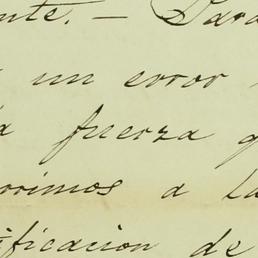 nte. — Para
un error
a fuerza q
rrimos a la
ificacion de